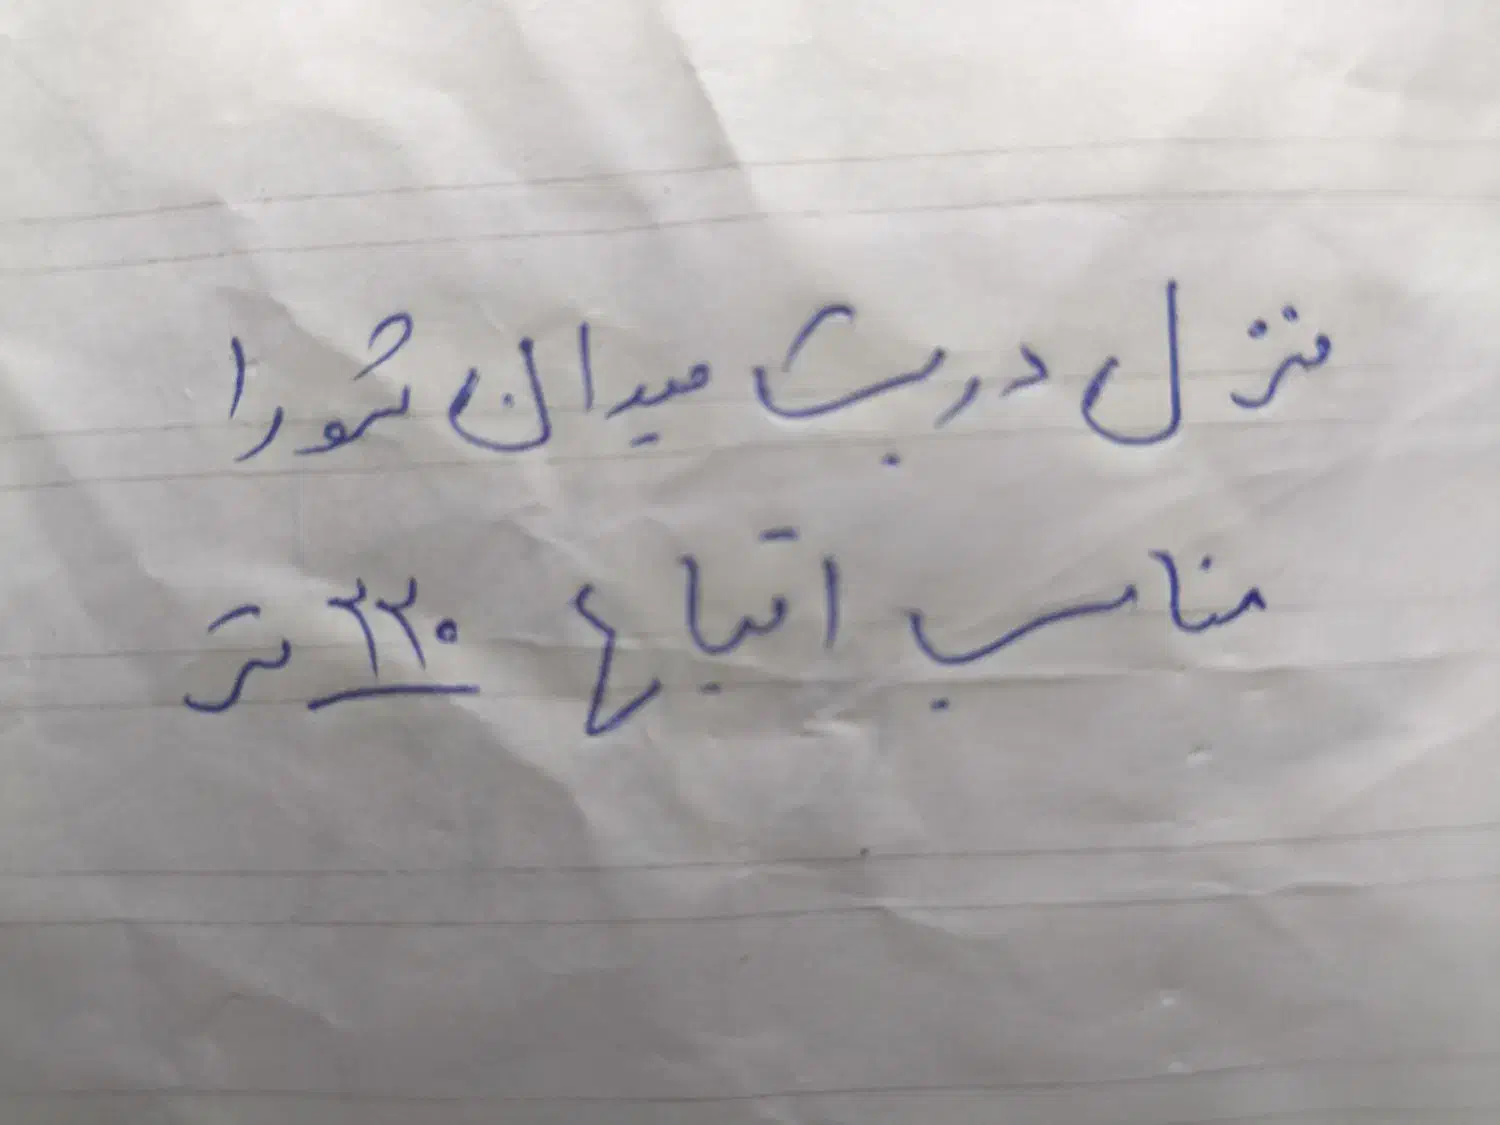 منزل دربست میدان شورا
مناسب اتباع ۲۲۰ متر